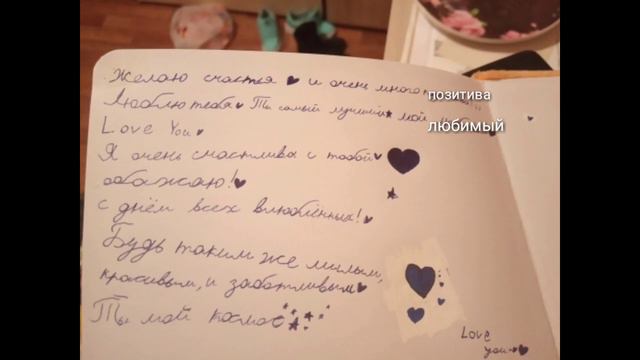 Желаю счастья и очень много позитива
Люблю тебя Ты самый лучший мой любимый
Love You
Я очень счастлива с тобой
обажаю!
с днём всех влюблённых!
Будь таким же милым,
красивым, и заботливым
Ты мой космос
Love
you